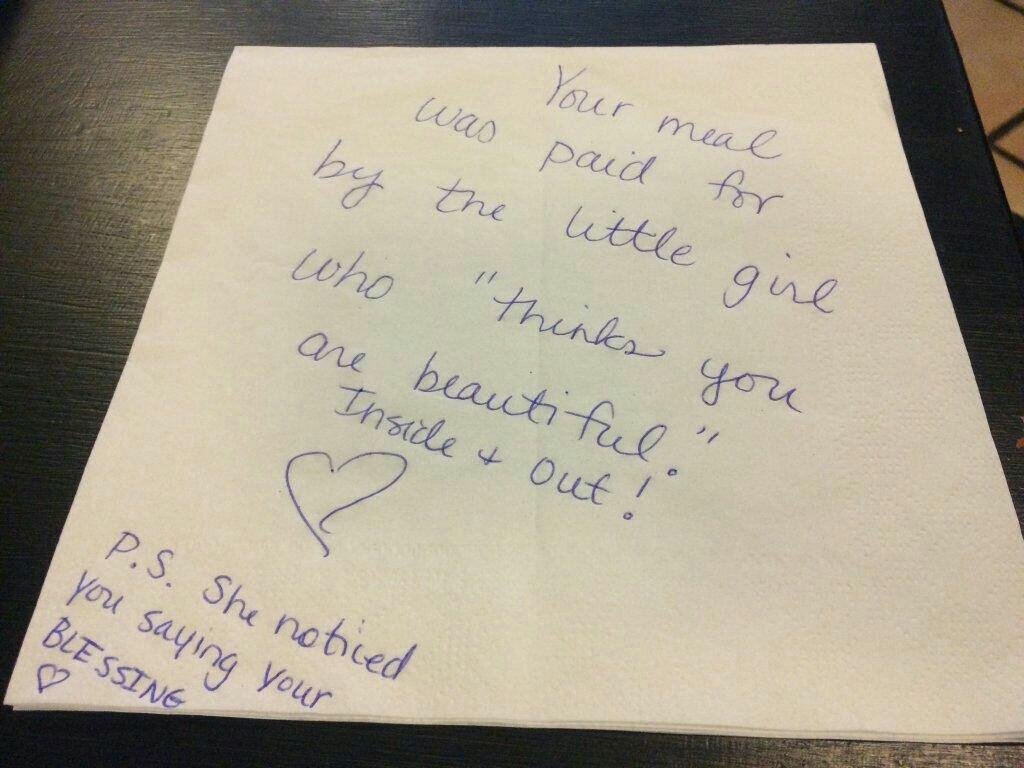 Your meal
was paid for
by the little girl
who "thinks you
are beautiful."
Inside + Out!
P.S. She noticed
you saying your
BLESSING